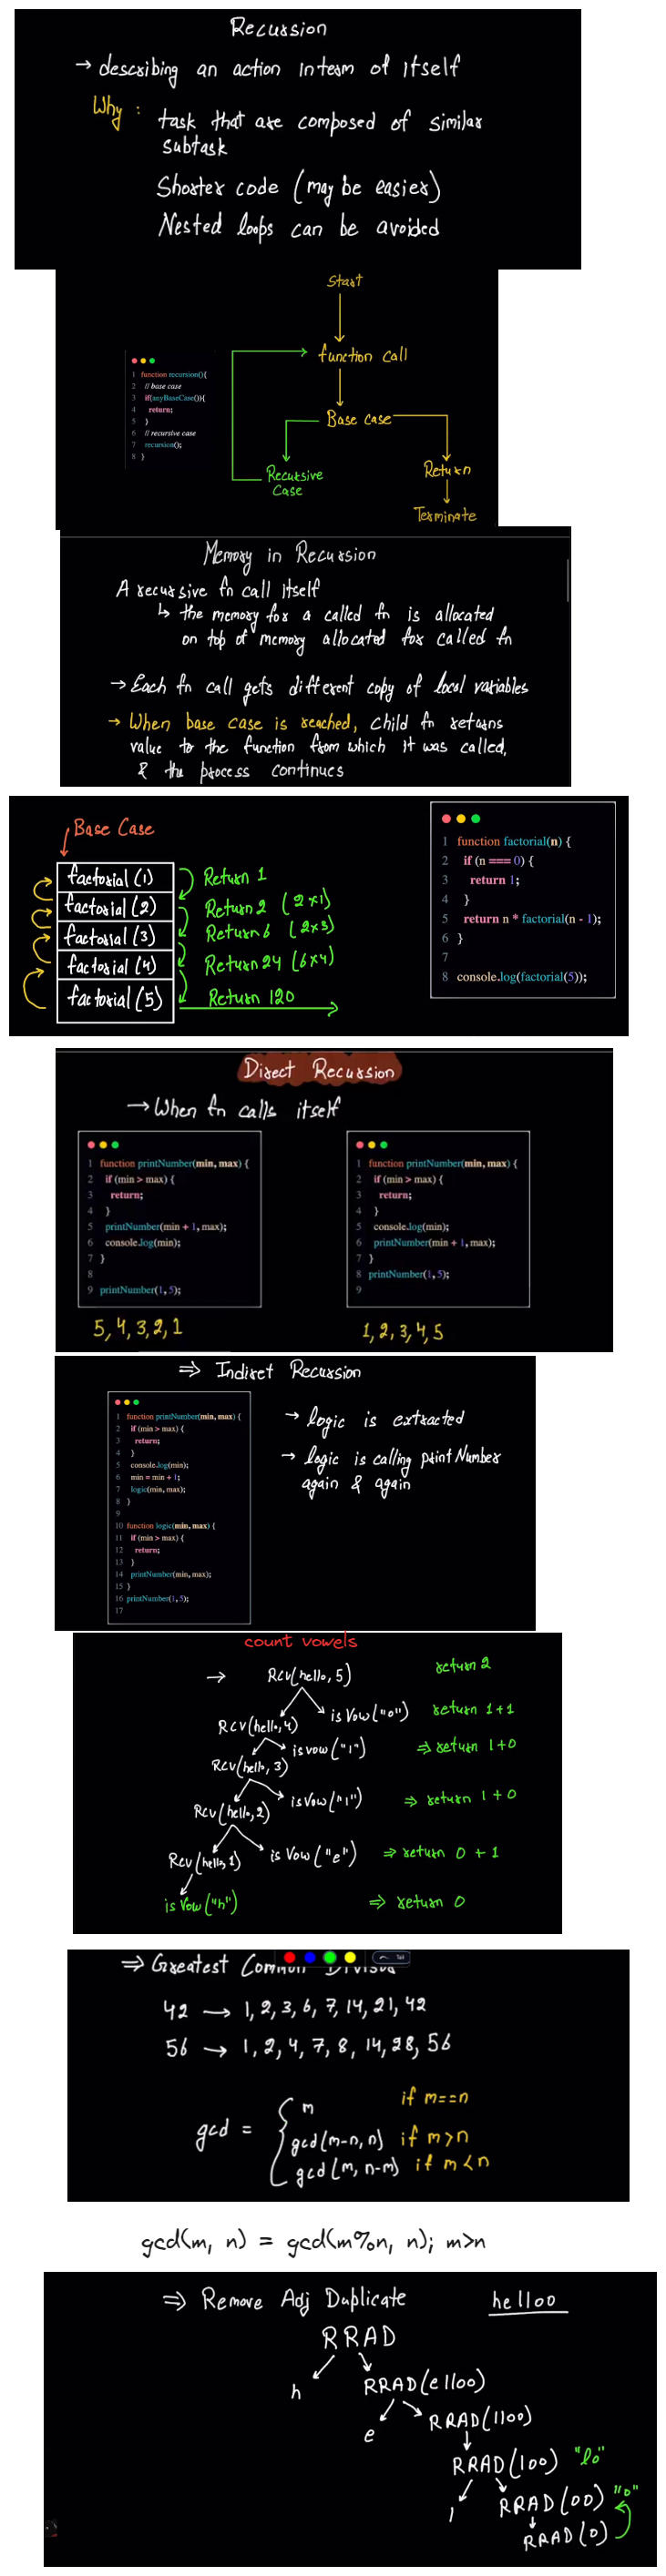 Recursion
→ describing an action in term of itself
Why : task that are composed of similar
subtask
Shorter code (may be easier)
Nested loops can be avoided
Start
function call
Base case
Recursive
Case
Return
Terminate
1 function recursion(){
2 // base case
3 if(anyBaseCase()){
4 return;
5 }
6 // recursive case
7 recursion();
8 }
Memory in Recursion
A recursive fn call itself
↳ the memory for a called fn is allocated
on top of memory allocated for called fn
→ Each fn call gets different copy of local variables
→ When base case is reached, child fn returns
value to the function from which it was called,
& the process continues
Base Case
factorial (1) Return 1
factorial (2) Return 2 (2×1)
factorial (3) Return 6 (2×3)
factorial (4) Return 24 (6×4)
factorial (5) Return 120
1 function factorial(n) {
2 if (n === 0) {
3 return 1;
4 }
5 return n * factorial(n - 1);
6 }
7
8 console.log(factorial(5));
Direct Recursion
→ When fn calls itself
1 function printNumber(min, max) {
2 if (min > max) {
3 return;
4 }
5 printNumber(min + 1, max);
6 console.log(min);
7 }
8
9 printNumber(1, 5);
5, 4, 3, 2, 1
1 function printNumber(min, max) {
2 if (min > max) {
3 return;
4 }
5 console.log(min);
6 printNumber(min + 1, max);
7 }
8 printNumber(1, 5);
9
1, 2, 3, 4, 5
⇒ Indiret Recursion
1 function printNumber(min, max) {
2 if (min > max) {
3 return;
4 }
5 console.log(min);
6 min = min + 1;
7 logic(min, max);
8 }
9
10 function logic(min, max) {
11 if (min > max) {
12 return;
13 }
14 printNumber(min, max);
15 }
16 printNumber(1, 5);
17
→ logic is extracted
→ logic is calling print Number
again & again
count vowels
→ Rcv(hello, 5) return 2
Rcv(hello, 4) is Vow("o") return 1+1
is vow("l") ⇒ return 1+0
Rcv(hello, 3)
Rcv(hello, 2) is Vow("l") ⇒ return 1+0
Rcv(hello, 1) is Vow("e") ⇒ return 0 + 1
is Vow("h") ⇒ return 0
⇒ Greatest Common Divisor
42 → 1, 2, 3, 6, 7, 14, 21, 42
56 → 1, 2, 4, 7, 8, 14, 28, 56
m if m==n
gcd = gcd(m-n, n) if m>n
gcd(m, n-m) if m<n
gcd(m, n) = gcd(m%n, n); m>n
⇒ Remove Adj Duplicate helloo
RRAD
h RRAD(elloo)
e RRAD(lloo)
RRAD(loo) "lo"
l RRAD(oo) "o"
RRAD(o)